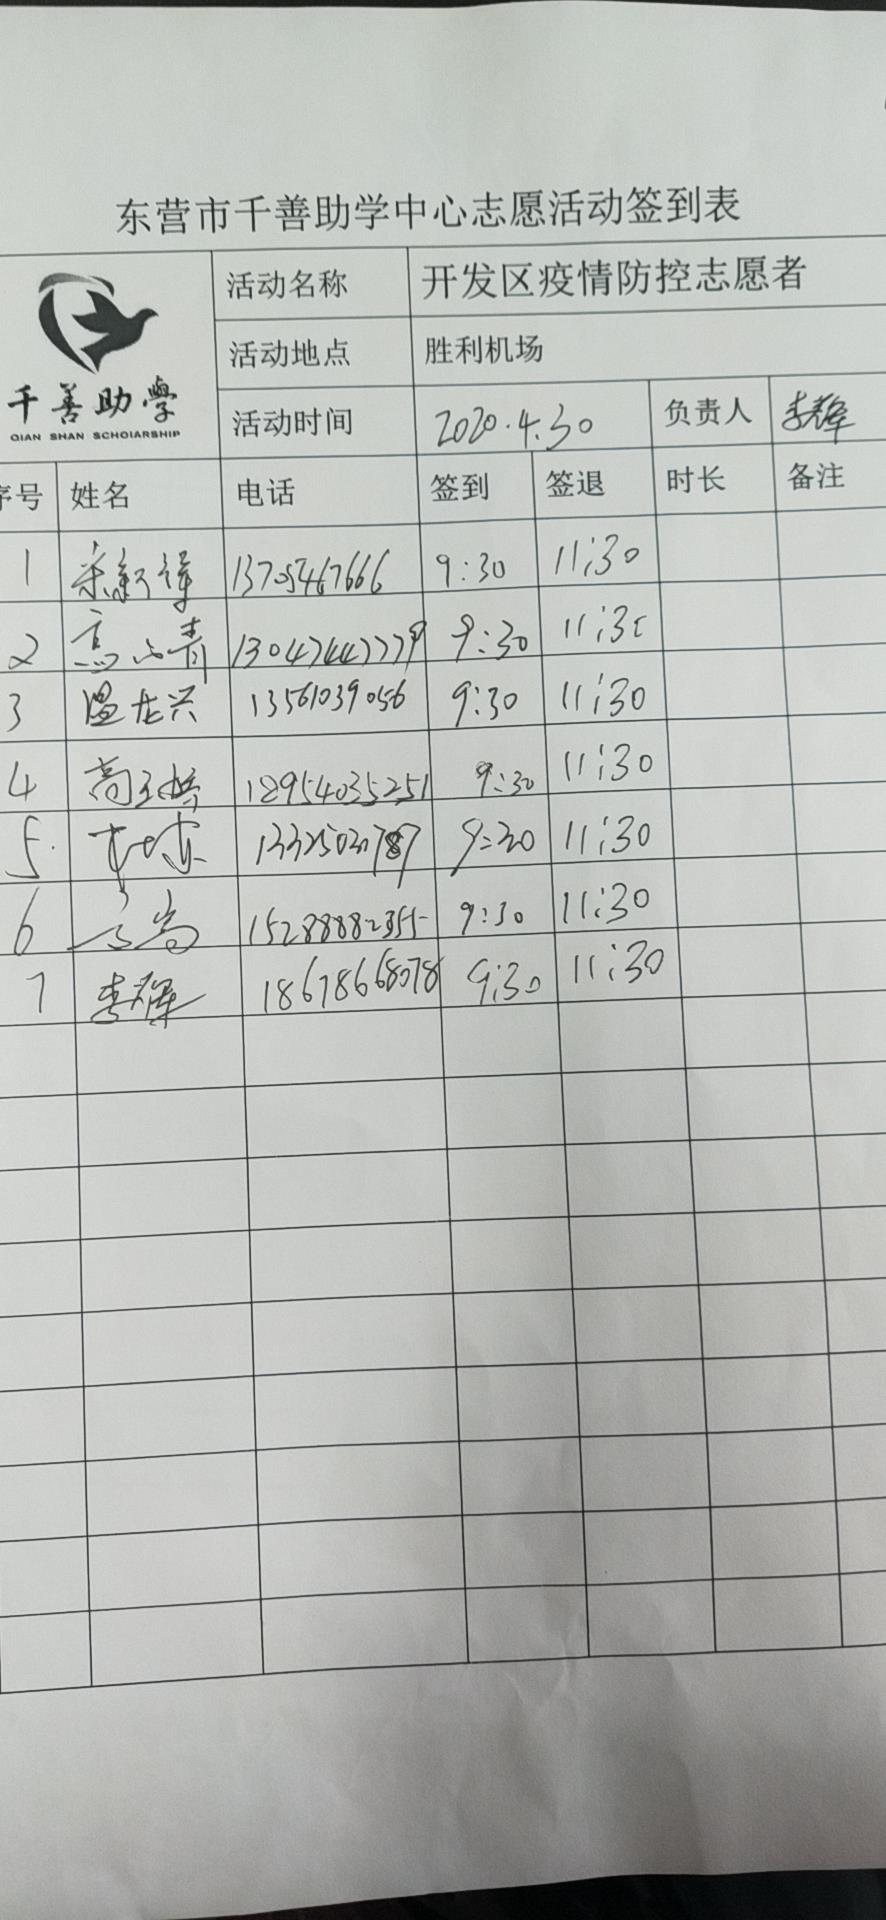 东营市千善助学中心志愿活动签到表
千善助學
QIAN SHAN SCHOIARSHIP
活动名称 开发区疫情防控志愿者
活动地点 胜利机场
活动时间 2020.4.30 负责人 李辉
序号 姓名 电话 签到 签退 时长 备注
1 13705467666 9:30 11:30
2 9:30 11:30
3 温龙兴 13561039056 9:30 11:30
4 18954035251 9:30 11:30
5. 9:30 11:30
6 15288882355 9:30 11:30
7 李辉 18678668078 9:30 11:30